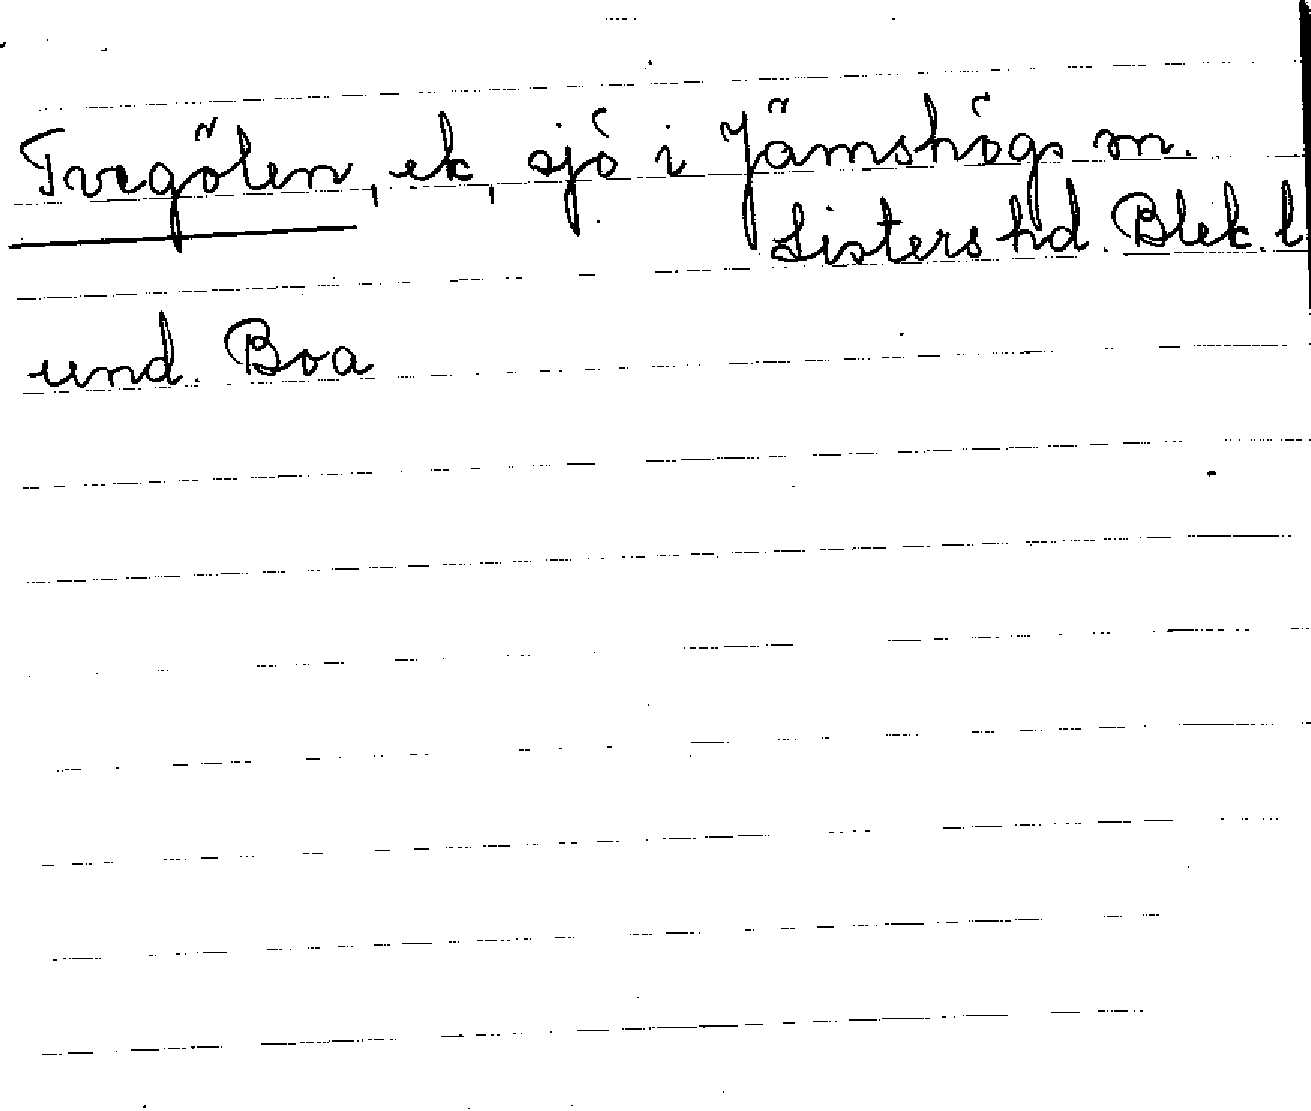 Tvegölen, ek, sjö i Jämshögs sn.
Listers hd. Blek. l
und. Boa